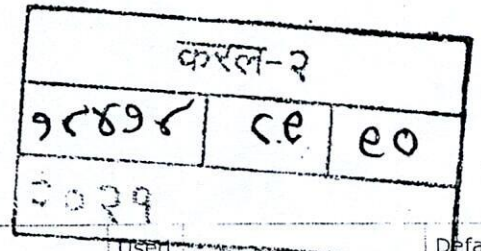 करल-२
१८४१४ ८९ ९०
२०२१
Defa